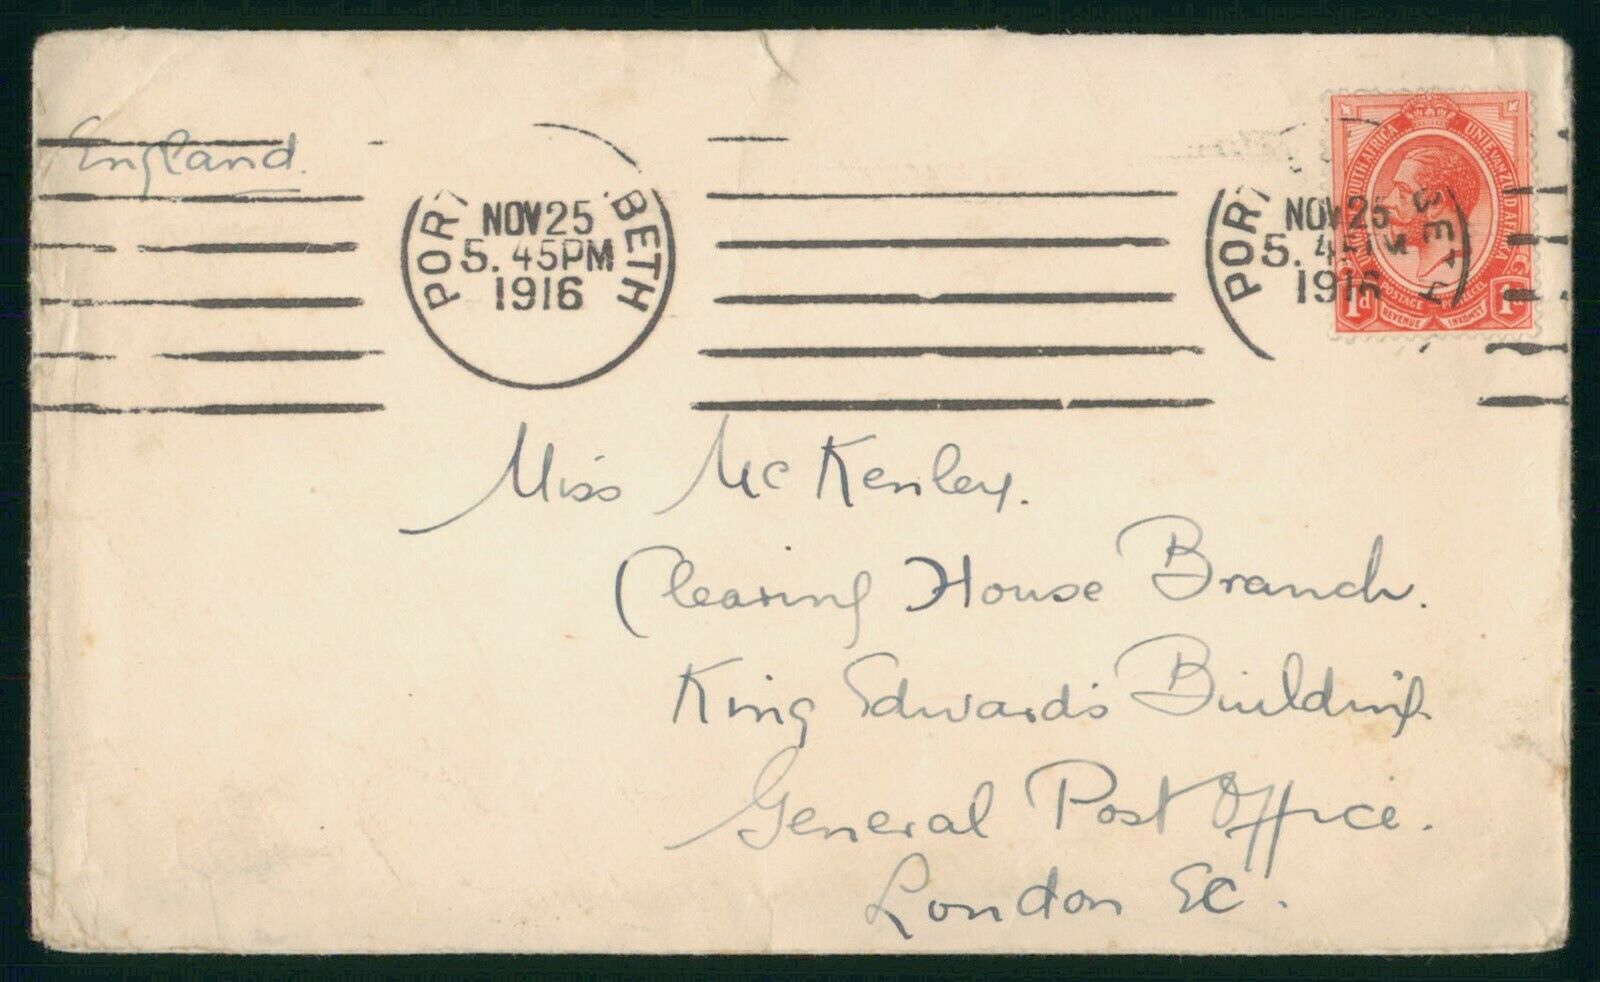 England.
PORT BETH
NOV 25
5. 45 PM
1916
POR BETH
NOV 25
5. 45 PM
1916
SOUTH AFRICA UNIE VAN ZUID AFRIKA
POSTAGE
REVENUE INKOMST
1d 1d
Miss McKenley.
Clearing House Branch.
King Edward's Building.
General Post Office.
London EC.